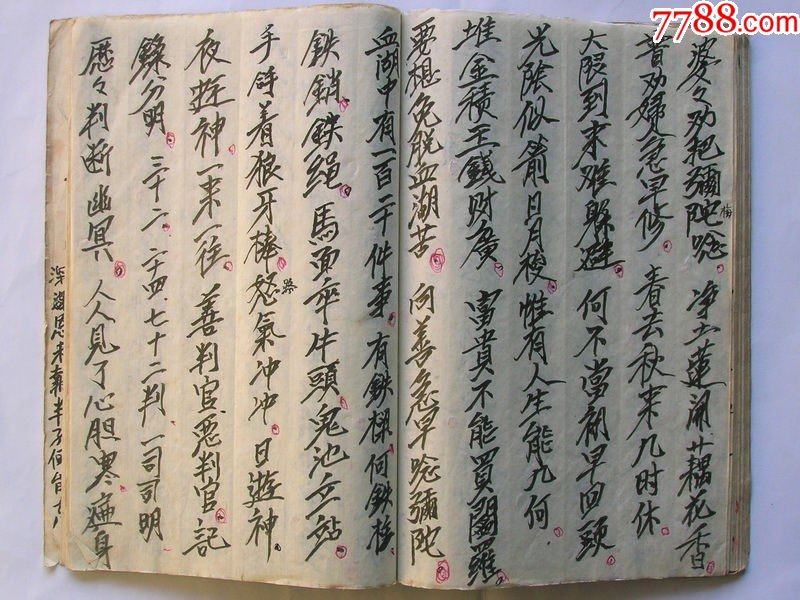 7788.com
婆々劝把彌陀唸 净土蓮開廾藕花香
普劝婦人急早修 春去秋来几时休
大限到来难躲避 何不當初早回頭
光陰似箭日月梭 惟有人生能几何
堆金積玉錢财廣 富貴不能買閻羅
要想免脱血湖苦 向善急早唸彌陀
血湖中有一百二十件事 有鉄 何鉄柱
鉄鎖鉄绳 馬面牵牛頭 鬼池立站
手 着狼牙棒 怒氣冲冲 日遊神
夜遊神一来一徃 善判官惡判官記
錄分明 三十六 二十四 七十二判 一司司明
歷々判断幽冥 人人見了心胆寒 遍身